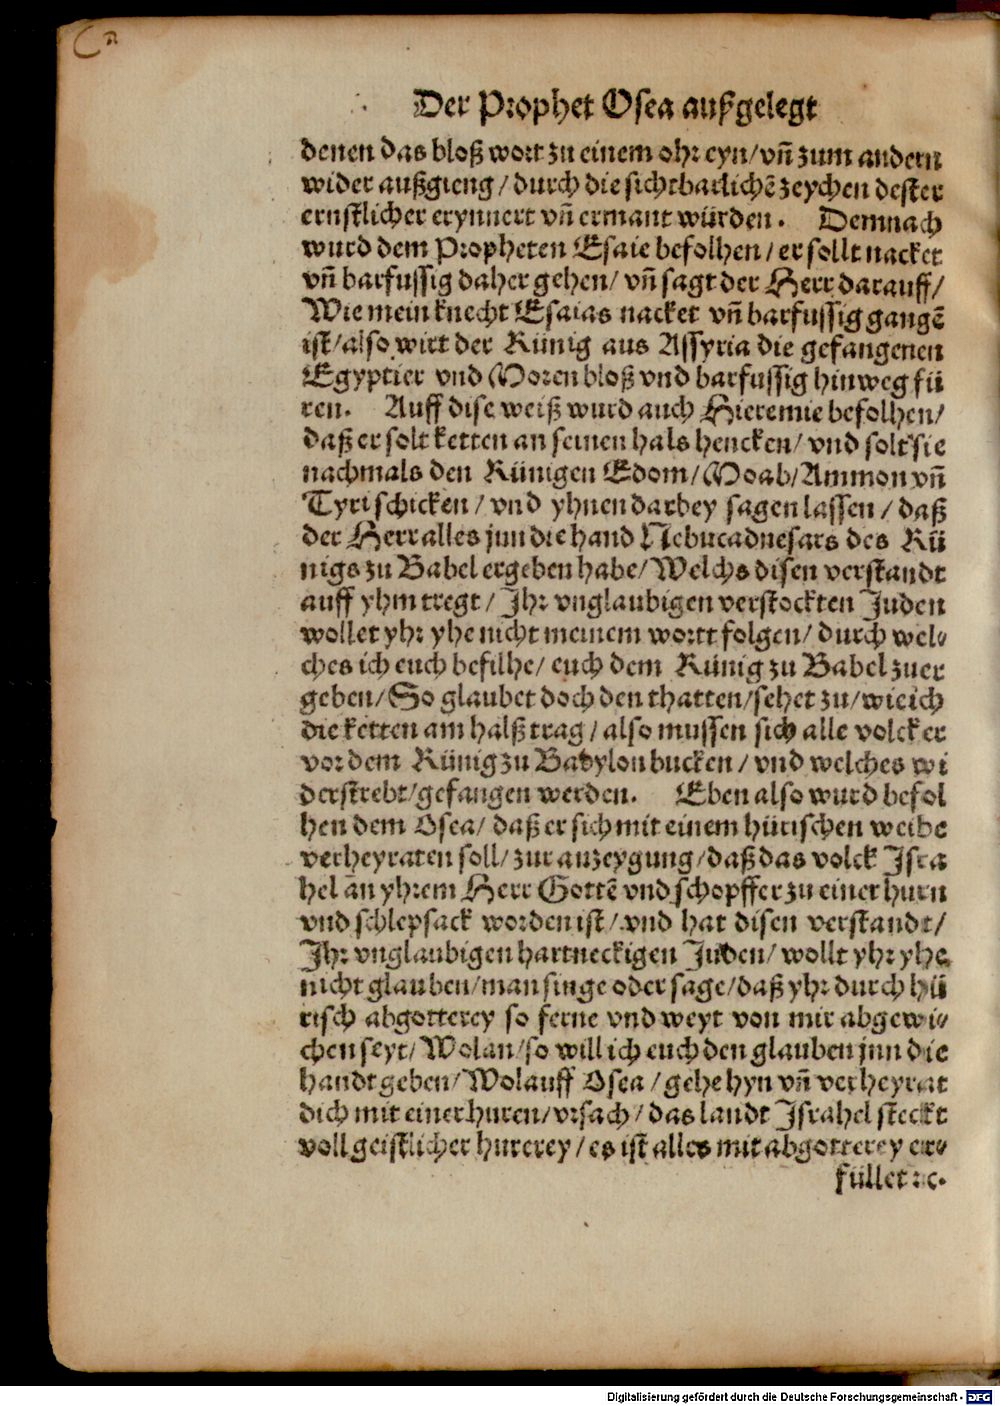 Der Prophet Osea außgelegt
denen das bloß wort zu einem ohr eyn/ vñ zum andern
wider außgieng/ durch die sichtbarlichẽ zeychen dester
ernstlicher erynnert vñ ermant würden. Demnach
wurd dem Propheten Esaie befolhen/ er sollt nacket
vñ barfussig daher gehen/ vñ sagt der Herr darauff/
Wie mein knecht Esaias nacket vñ barfussig gangẽ
ist/ also wirt der Künig aus Assyria die gefangenen
Egyptier vnd Moren bloß vnd barfussig hinweg fü
ren. Auff dise weiß wurd auch Hieremie befolhen/
daß er solt ketten an seinen hals hencken/ vnd solt sie
nachmals den Künigen Edom/ Moab/ Ammon vñ
Tyri schicken/ vnd yhnen darbey sagen lassen/ daß
der Herr alles jnn die hand Nebucadnesars des Kü
nigs zu Babel ergeben habe/ Welchs disen verstandt
auff yhm tregt/ Jhr vnglaubigen verstockten Juden
wollet yhr yhe nicht meinem wortt folgen/ durch wel⸗
ches ich euch befilhe/ euch dem Künig zu Babel zuer
geben/ So glaubet doch den thatten/ sehet zu/ wie ich
die ketten am halß trag/ also mussen sich alle volcker
vor dem Künig zu Babylon bucken/ vnd welches wi
derstrebt/ gefangen werden. Eben also wurd befol
hen dem Osea/ daß er sich mit einem hürischen weibe
verheyraten soll/ zur anzeygung/ daß das volck Jsra
hel an yhrem Herr Gottẽ vnd schopffer zu einer hurn
vnd schlepsack worden ist/ vnd hat disen verstandt/
Jhr vnglaubigen hartneckigen Juden/ wollt yhr yhe
nicht glauben/ man singe oder sage/ daß yhr durch hü
risch abgotterey so ferne vnd weyt von mir abgewi⸗
chen seyt/ Wolan/ so will ich euch den glauben jnn die
handt geben/ Wolauff Osea/ gehe hyn vñ verheyrat
dich mit einer huren/ vrsach/ das landt Jsrahel steckt
voll geistlicher hurerey/ es ist alles mit abgotterey er⸗
füllet ꝛc.
Digitalisierung gefördert durch die Deutsche Forschungsgemeinschaft - DFG